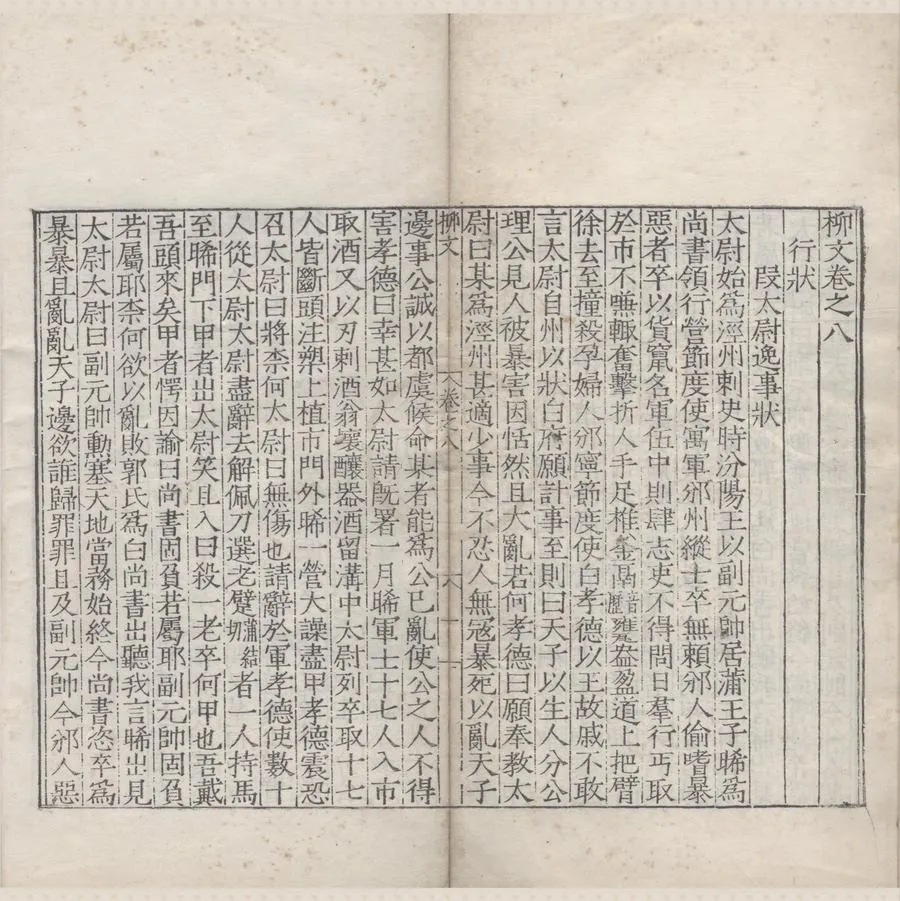 柳文卷之八
行狀
段太尉逸事狀
太尉始爲涇州刺史時汾陽王以副元帥居蒲王子晞爲
尚書領行營節度使寓軍邠州縱士卒無賴邠人偷嗜暴
惡者卒以貨竄名軍伍中則肆志吏不得問日羣行丐取
於市不嗛輒奮擊折人手足椎釜鬲甕盎盈道上把臂
徐去至撞殺孕婦人邠寧節度使白孝德以王故戚不敢
言太尉自州以狀白府願計事至則曰天子以生人分公
理公見人被暴害因恬然且大亂若何孝德曰願奉教太
尉曰某爲涇州甚適少事今不忍人無寇暴死以亂天子
柳文
卷之八
邊事公誠以都虞候命某者能爲公已亂使公之人不得
害孝德曰幸甚如太尉請既署一月晞軍士十七人入市
取酒又以刃刺酒翁壞釀器酒留溝中太尉列卒取十七
人皆斷頭注槊上植市門外晞一營大譟盡甲孝德震恐
召太尉曰將柰何太尉曰無傷也請辭於軍孝德使數十
人從太尉太尉盡辭去解佩刀選老躄者一人持馬
至晞門下甲者出太尉笑且入曰殺一老卒何甲也吾戴
吾頭來矣甲者愕因諭曰尚書固負若屬耶副元帥固負
若屬耶柰何欲以亂敗郭氏爲白尚書出聽我言晞出見
太尉太尉曰副元帥勳塞天地當務始終今尚書恣卒爲
暴暴且亂亂天子邊欲誰歸罪罪且及副元帥今邠人惡